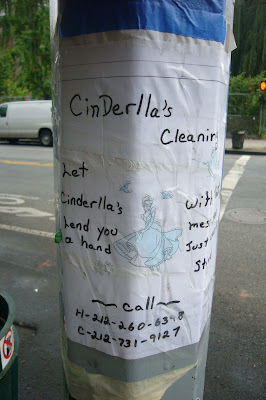 CinDerlla's
Cleaning
Let
Cinderlla's
Lend you
a hand
With
mes
Just
St
~ call ~
H-212-260-6398
C-212-731-9127